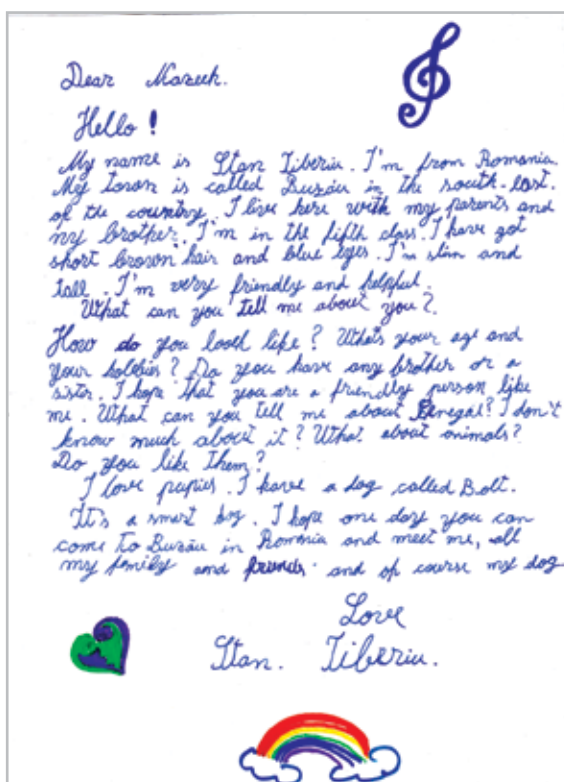 Dear Marieh.
Hello!
My name is Stan Tiberiu. I'm from Romania.
My town is called Buzău in the south-east.
of the country. I live here with my parents and
my brother. I'm in the fifth class. I have got
short brown hair and blue eyes. I'm slim and
tall. I'm very friendly and helpful.
What can you tell me about you?
How do you look like? What's your age and
your hobbies? Do you have any brother or a
sister. I hope that you are a friendly person like
me. What can you tell me about Senegal? I don't
know much about it? What about animals?
Do you like them?
I love pupies. I have a dog called Bolt.
It's a smart dog. I hope one day you can
come to Buzău in Romania and meet me, all
my family and friends and of course my dog
Love
Stan. Tiberiu.